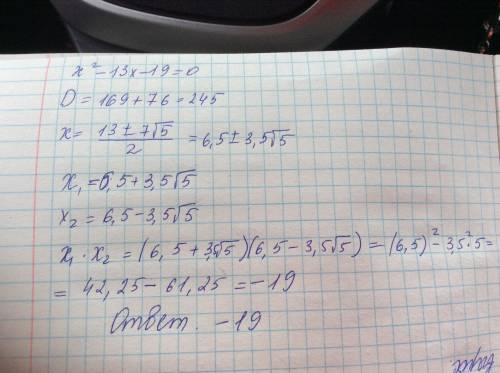 x² - 13x - 19 = 0
D = 169 + 76 = 245
x = (13 ± 7√5)/2 = 6,5 ± 3,5√5
x₁ = 6,5 + 3,5√5
x₂ = 6,5 - 3,5√5
x₁ · x₂ = (6,5 + 3,5√5)(6,5 - 3,5√5) = (6,5)² - 3,5²·5 =
= 42,25 - 61,25 = -19
Ответ. -19